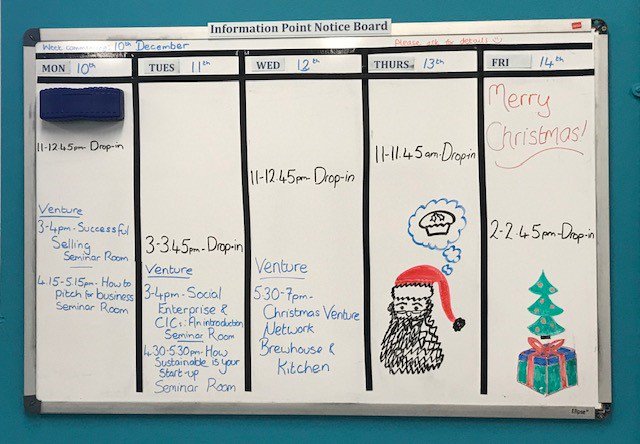 Information Point Notice Board
Week Commencing: 10th December
Please ask for details
MON 10th
TUES 11th
WED 12th
THURS 13th
FRI 14th
11-12.45pm Drop-in
Venture
3-4pm - Successful
Selling
Seminar Room
4.15-5.15pm - How to
pitch for business
Seminar Room
3-3.45pm - Drop-in
Venture
3-4pm - Social
Enterprise &
CICs: An introduction
Seminar Room
4.30-5.30pm - How
Sustainable is your
Start-up
Seminar Room
11-12.45pm Drop-in
Venture
5.30-7pm -
Christmas Venture
Network
Brewhouse &
Kitchen
11-11.45am - Drop-in
Merry
Christmas!
2-2.45pm - Drop-in